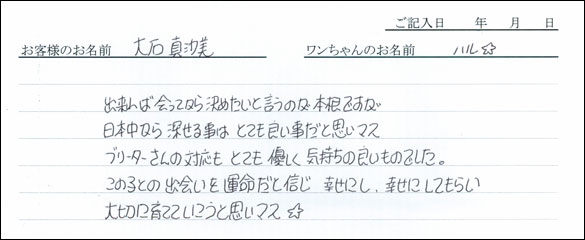 ご記入日 年 月 日
お客様のお名前 大石 真沙美 ワンちゃんのお名前 ハル☆
出来れば会ってから決めたいと言うのが本根ですが
日本中から探せる事はとても良い事だと思いマス
ブリーダーさんの対応もとても優しく気持ちの良いものでした。
この子との出会いを運命だと信じ 幸せにし、幸せにしてもらい
大切に育てていこうと思いマス ☆